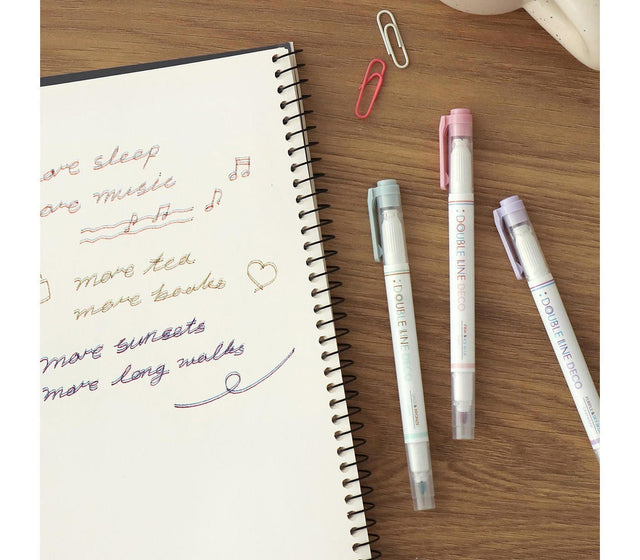 ore sleep
ore music
more tea
more books
more sunsets
more long walks
:DOUBLE LINE DECO
:DOUBLE LINE DECO
:DOUBLE LINE DECO